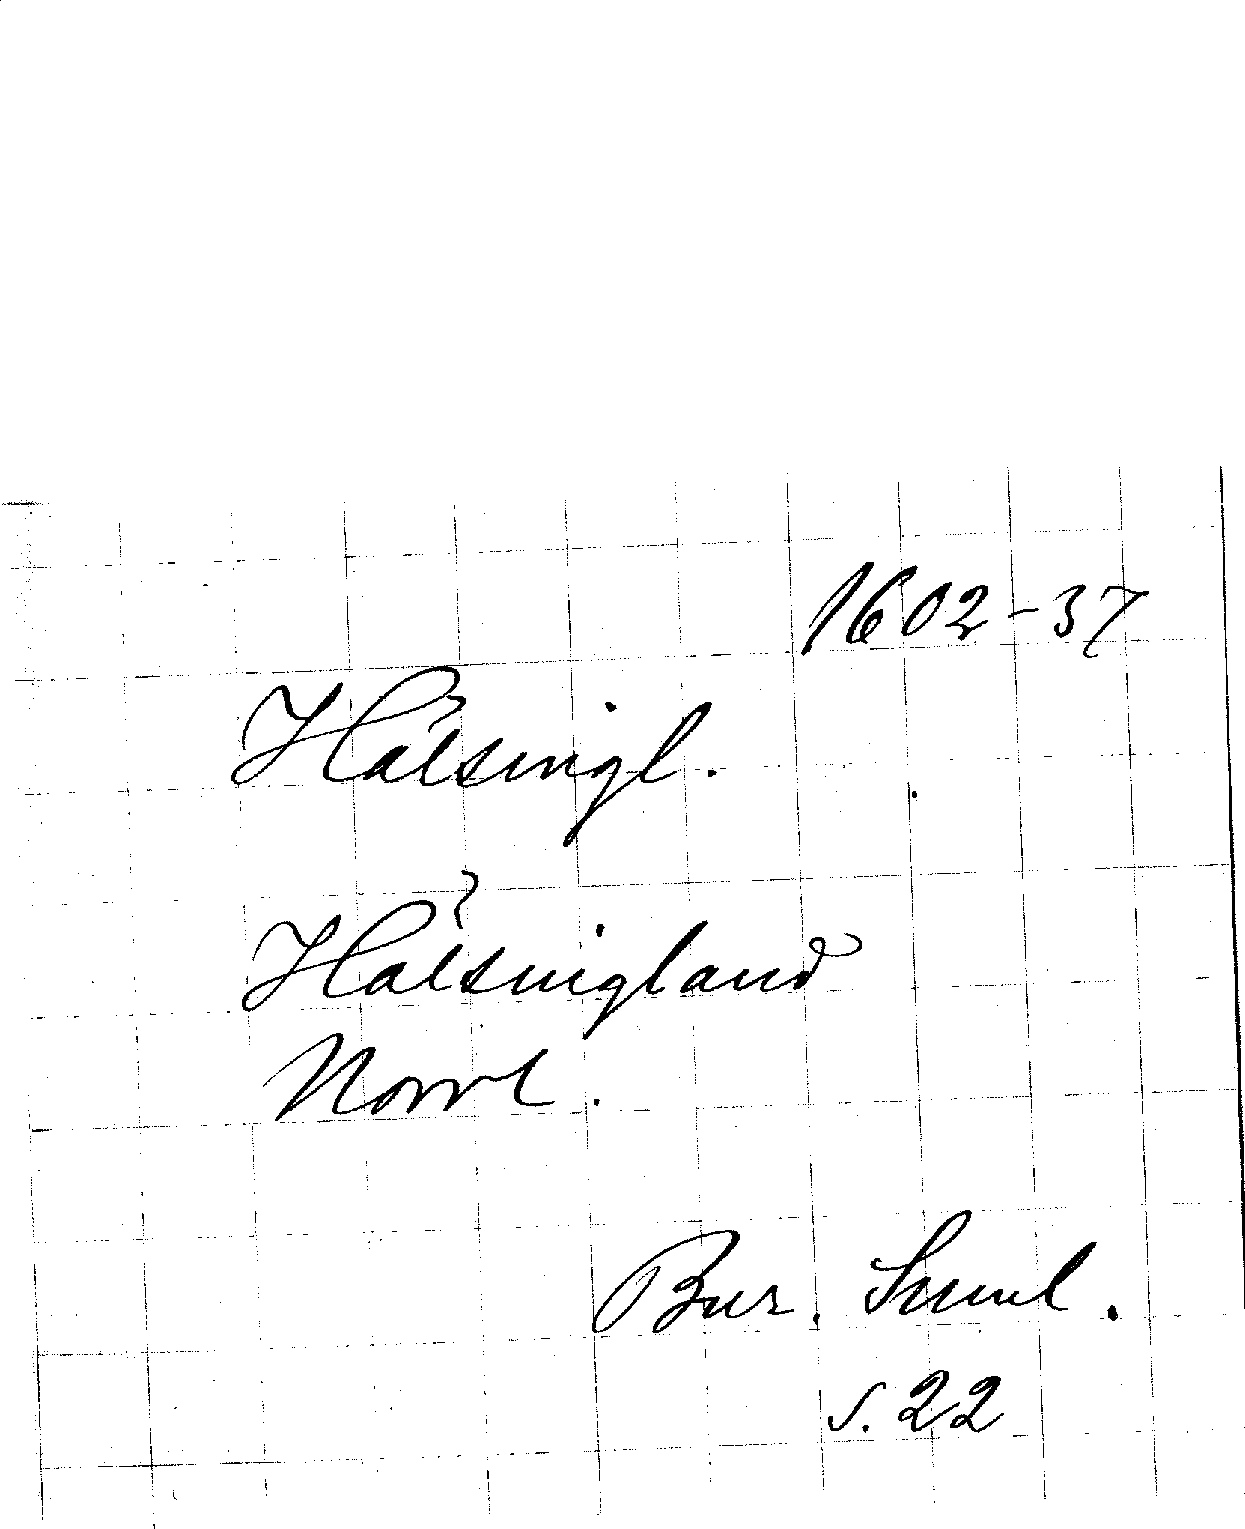 1602-37
Hälsingl.
Hälsingland
Norrl.
Bur. Suml.
s. 22